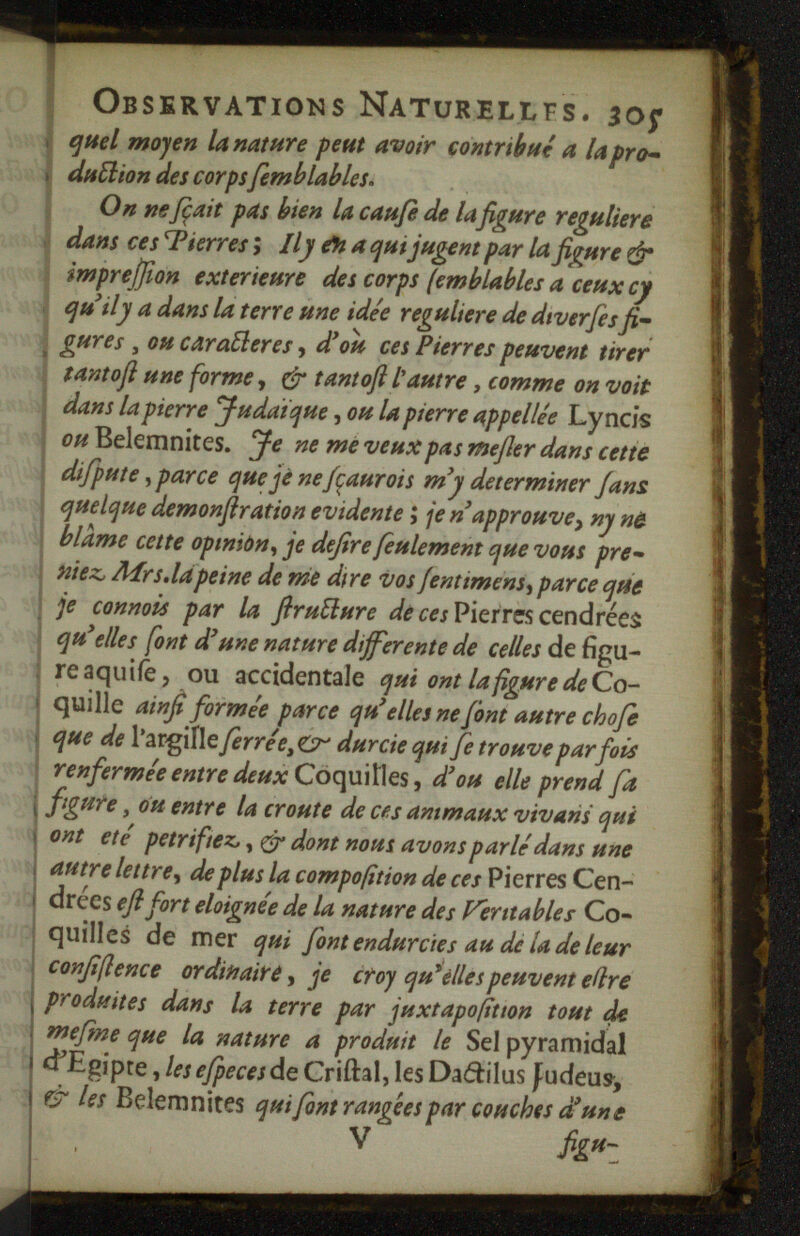 OBSERVATIONS NATURELLES. 305
quel moyen la nature peut avoir contribué a la pro-
duction des corps ſemblables.
On ne ſçait pas bien la cauſe de la figure reguliere
dans ces Pierres; Il y en a qui jugent par la figure &
impreſſion exterieure des corps ſemblables a ceux cy
qu'il y a dans la terre une idée reguliere de diverſes fi-
gures, ou caracteres, d'ou ces Pierres peuvent tirer
tantoſt une forme, & tantoſt l'autre, comme on voit
dans la pierre Judaïque, ou la pierre appellée Lyncis
ou Belemnites. Je ne me veux pas meſler dans cette
diſpute, parce que je ne ſçaurois m'y determiner ſans
quelque demonſtration evidente; je n'approuve, ny ne
blâme cette opinion, je deſire ſeulement que vous pre-
niez Mrs. la peine de me dire vos ſentimens, parce que
je connois par la ſtructure de ces Pierres cendrées
qu'elles ſont d'une nature differente de celles de figu-
re aquiſe, ou accidentale qui ont la figure de Co-
quille ainſi formée parce qu'elles ne ſont autre choſe
que de l'argille ferrée, & durcie qui ſe trouve par fois
renfermée entre deux Coquilles, d'ou elle prend ſa
figure, ou entre la croute de ces animaux vivans qui
ont eté petrifiez, & dont nous avons parlé dans une
autre lettre, de plus la compoſition de ces Pierres Cen-
drées eſt fort eloignée de la nature des Veritables Co-
quilles de mer qui ſont endurcies au de la de leur
conſiſtence ordinaire, je croy qu'elles peuvent eſtre
produites dans la terre par juxtapoſition tout de
meſme que la nature a produit le Sel pyramidal
d'Egipte, les eſpeces de Criſtal, les Dactilus Judeus,
& les Belemnites qui ſont rangées par couches d'une
V figu-